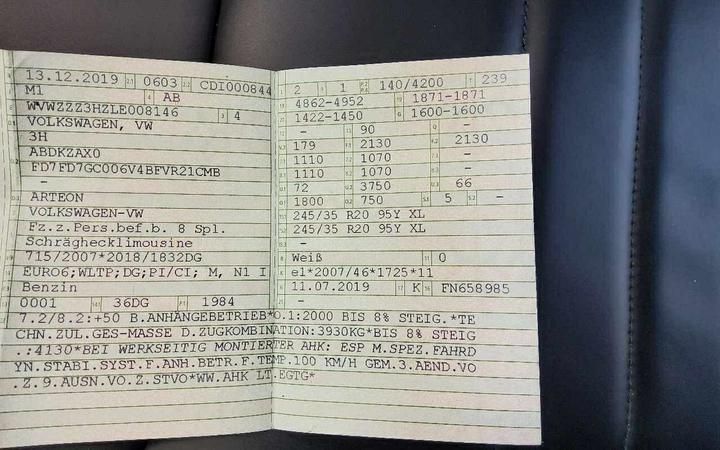 13.12.2019 0603 CDI000844
M1 AB
WVWZZZ3HZLE008146 4
VOLKSWAGEN, VW
3H
ABDKZAX0
FD7FD7GC006V4BFVR21CMB
–
ARTEON
VOLKSWAGEN-VW
Fz.z.Pers.bef.b. 8 Spl.
Schräghecklimousine
715/2007*2018/1832DG
EURO6;WLTP;DG;PI/CI; M, N1 I
Benzin
0001 36DG 1984
2 1 140/4200 239
4862-4952 1871-1871
1422-1450 1600-1600
– 90 –
179 2130 2130
1110 1070 –
1110 1070 –
72 3750 66
1800 750 5 –
245/35 R20 95Y XL
245/35 R20 95Y XL
–
Weiß 0
e1*2007/46*1725*11
11.07.2019 K FN658985
–
7.2/8.2:+50 B.ANHÄNGEBETRIEB*O.1:2000 BIS 8% STEIG.*TE
CHN.ZUL.GES-MASSE D.ZUGKOMBINATION:3930KG*BIS 8% STEIG
.:4130*BEI WERKSEITIG MONTIERTER AHK: ESP M.SPEZ.FAHRD
YN.STABI.SYST.F.ANH.BETR.F.TEMP.100 KM/H GEM.3.AEND.VO
.Z.9.AUSN.VO.Z.STVO*WW.AHK LT.EGTG*